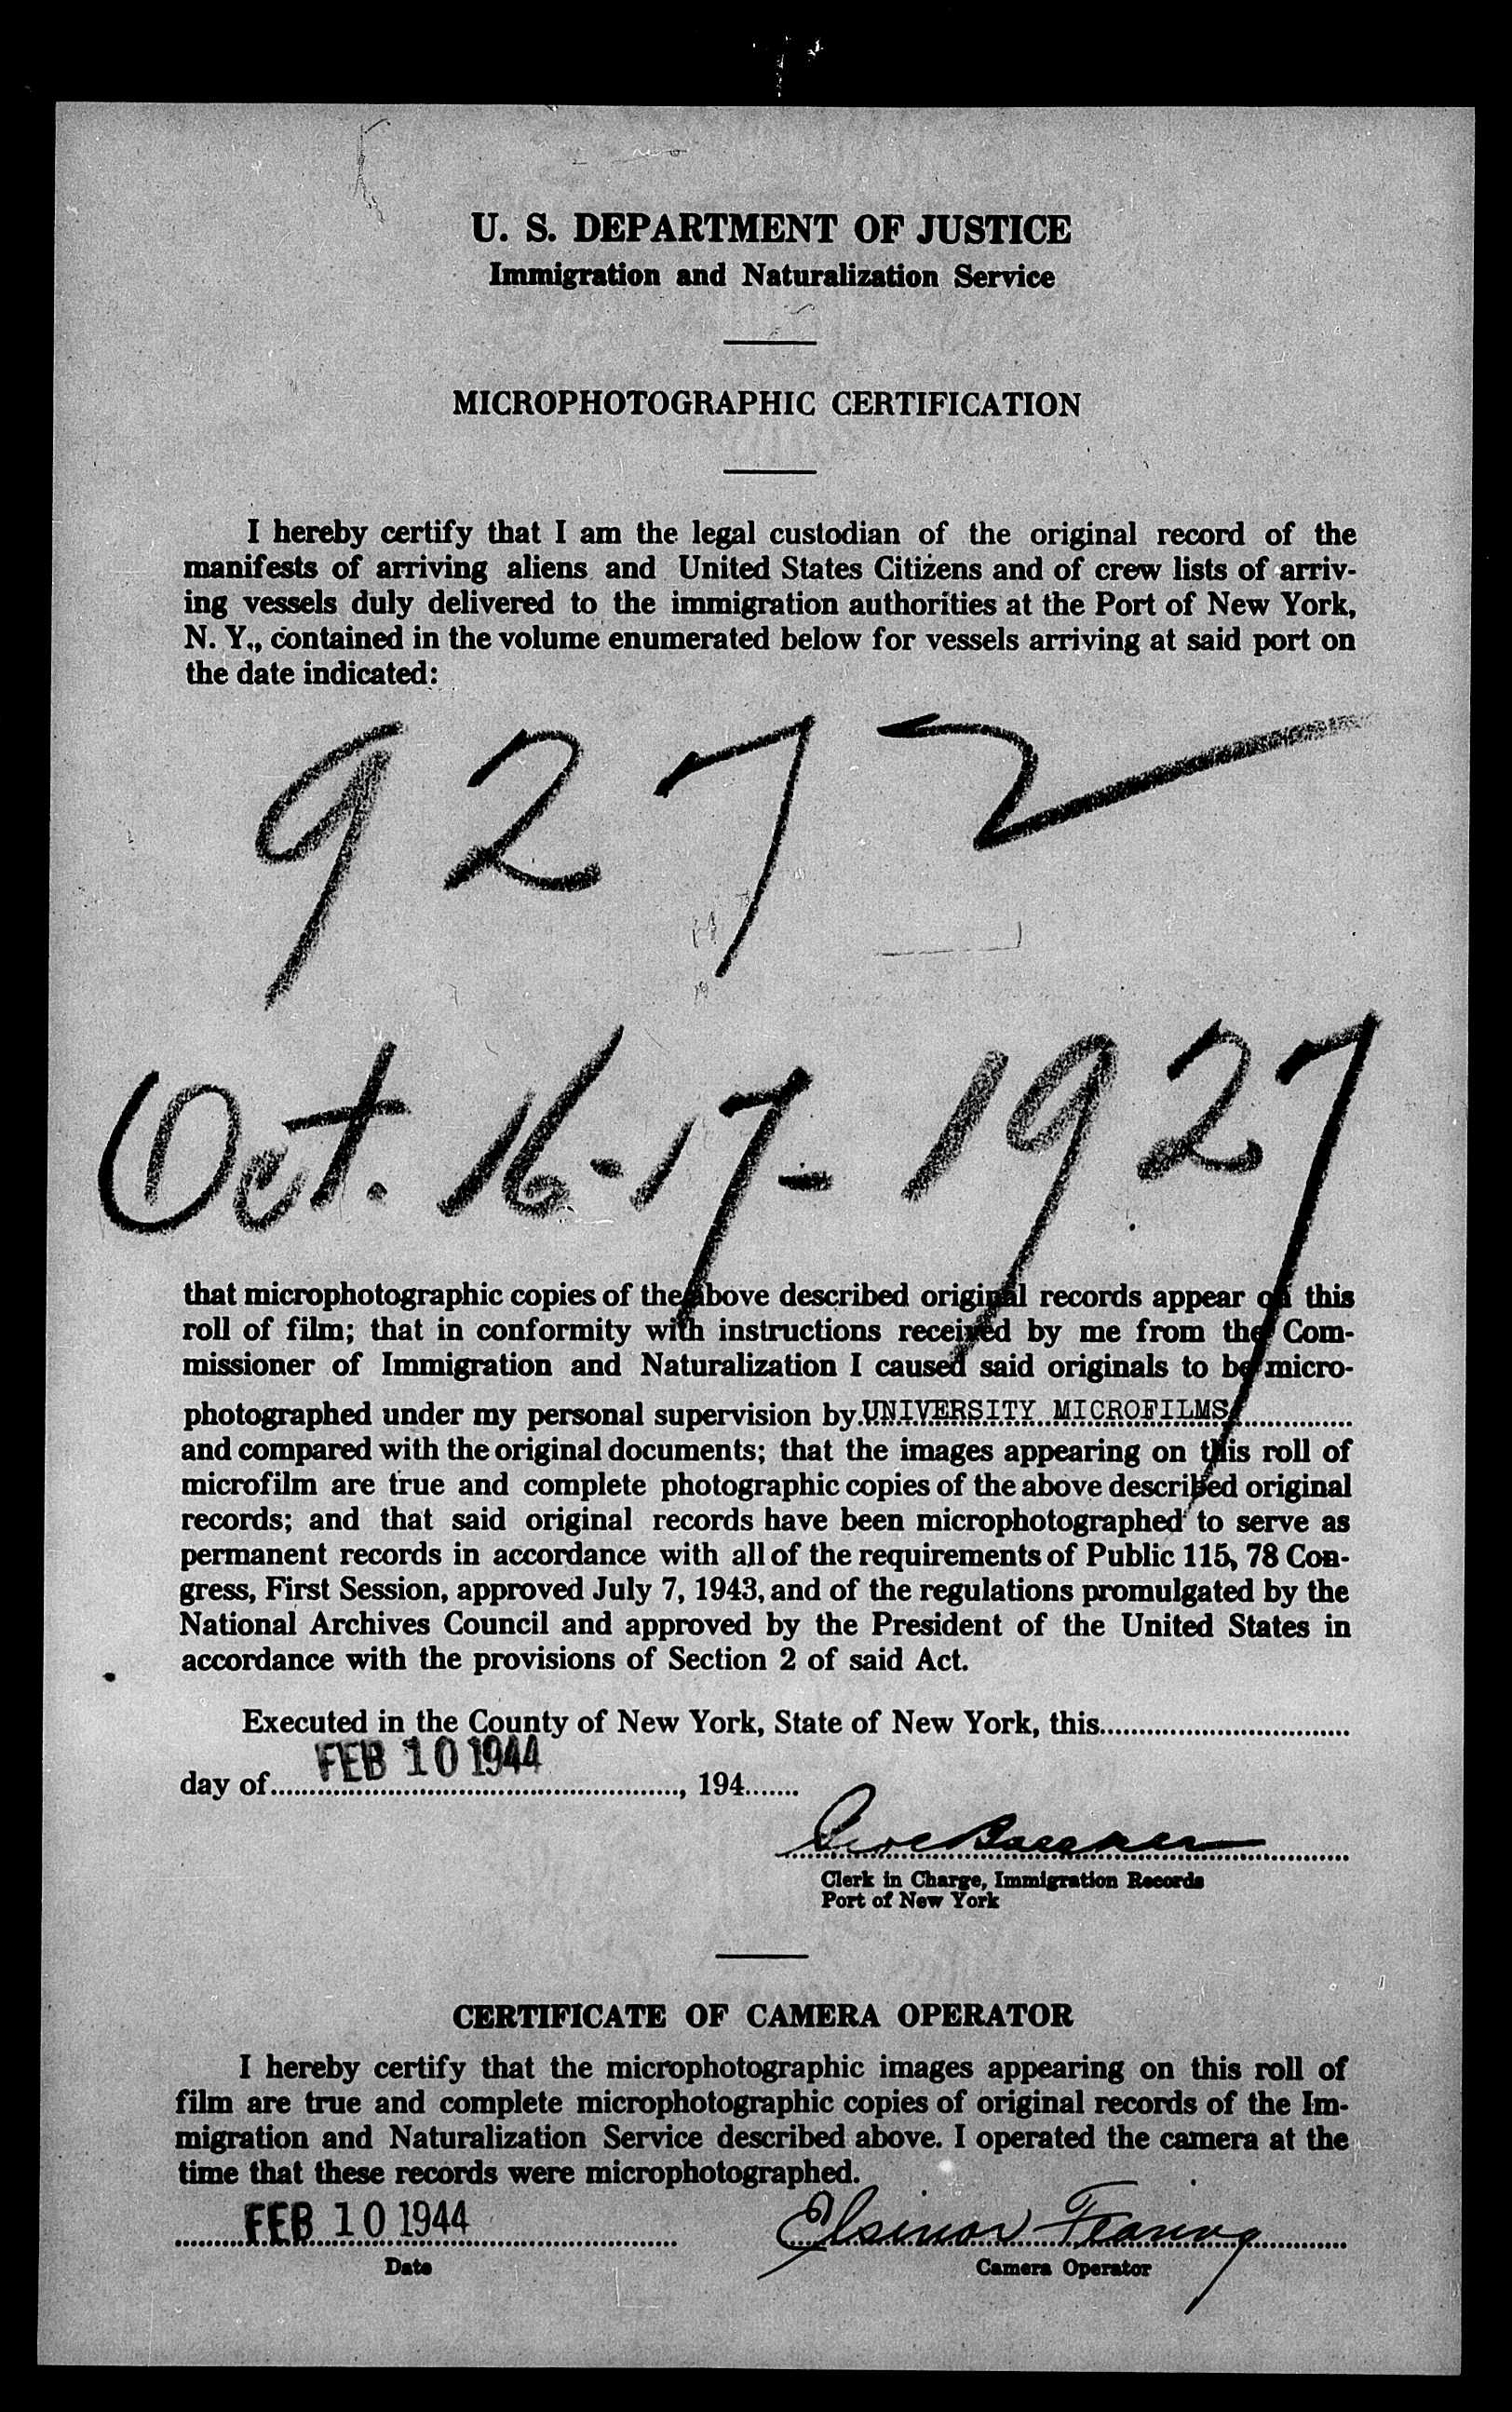 U. S. DEPARTMENT OF JUSTICE
Immigration and Naturalization Service
MICROPHOTOGRAPHIC CERTIFICATION
I hereby certify that I am the legal custodian of the original record of the
manifests of arriving aliens and United States Citizens and of crew lists of arriv-
ing vessels duly delivered to the immigration authorities at the Port of New York,
N. Y., contained in the volume enumerated below for vessels arriving at said port on
the date indicated:
9272
Oct. 16-17-1927
that microphotographic copies of the above described original records appear on this
roll of film; that in conformity with instructions received by me from the Com-
missioner of Immigration and Naturalization I caused said originals to be micro-
photographed under my personal supervision by UNIVERSITY MICROFILMS
and compared with the original documents; that the images appearing on this roll of
microfilm are true and complete photographic copies of the above described original
records; and that said original records have been microphotographed to serve as
permanent records in accordance with all of the requirements of Public 115, 78 Con-
gress, First Session, approved July 7, 1943, and of the regulations promulgated by the
National Archives Council and approved by the President of the United States in
accordance with the provisions of Section 2 of said Act.
Executed in the County of New York, State of New York, this
FEB 10 1944
day of , 194
Clerk in Charge, Immigration Records
Port of New York
CERTIFICATE OF CAMERA OPERATOR
I hereby certify that the microphotographic images appearing on this roll of
film are true and complete microphotographic copies of original records of the Im-
migration and Naturalization Service described above. I operated the camera at the
time that these records were microphotographed.
FEB 10 1944
Date
Camera Operator